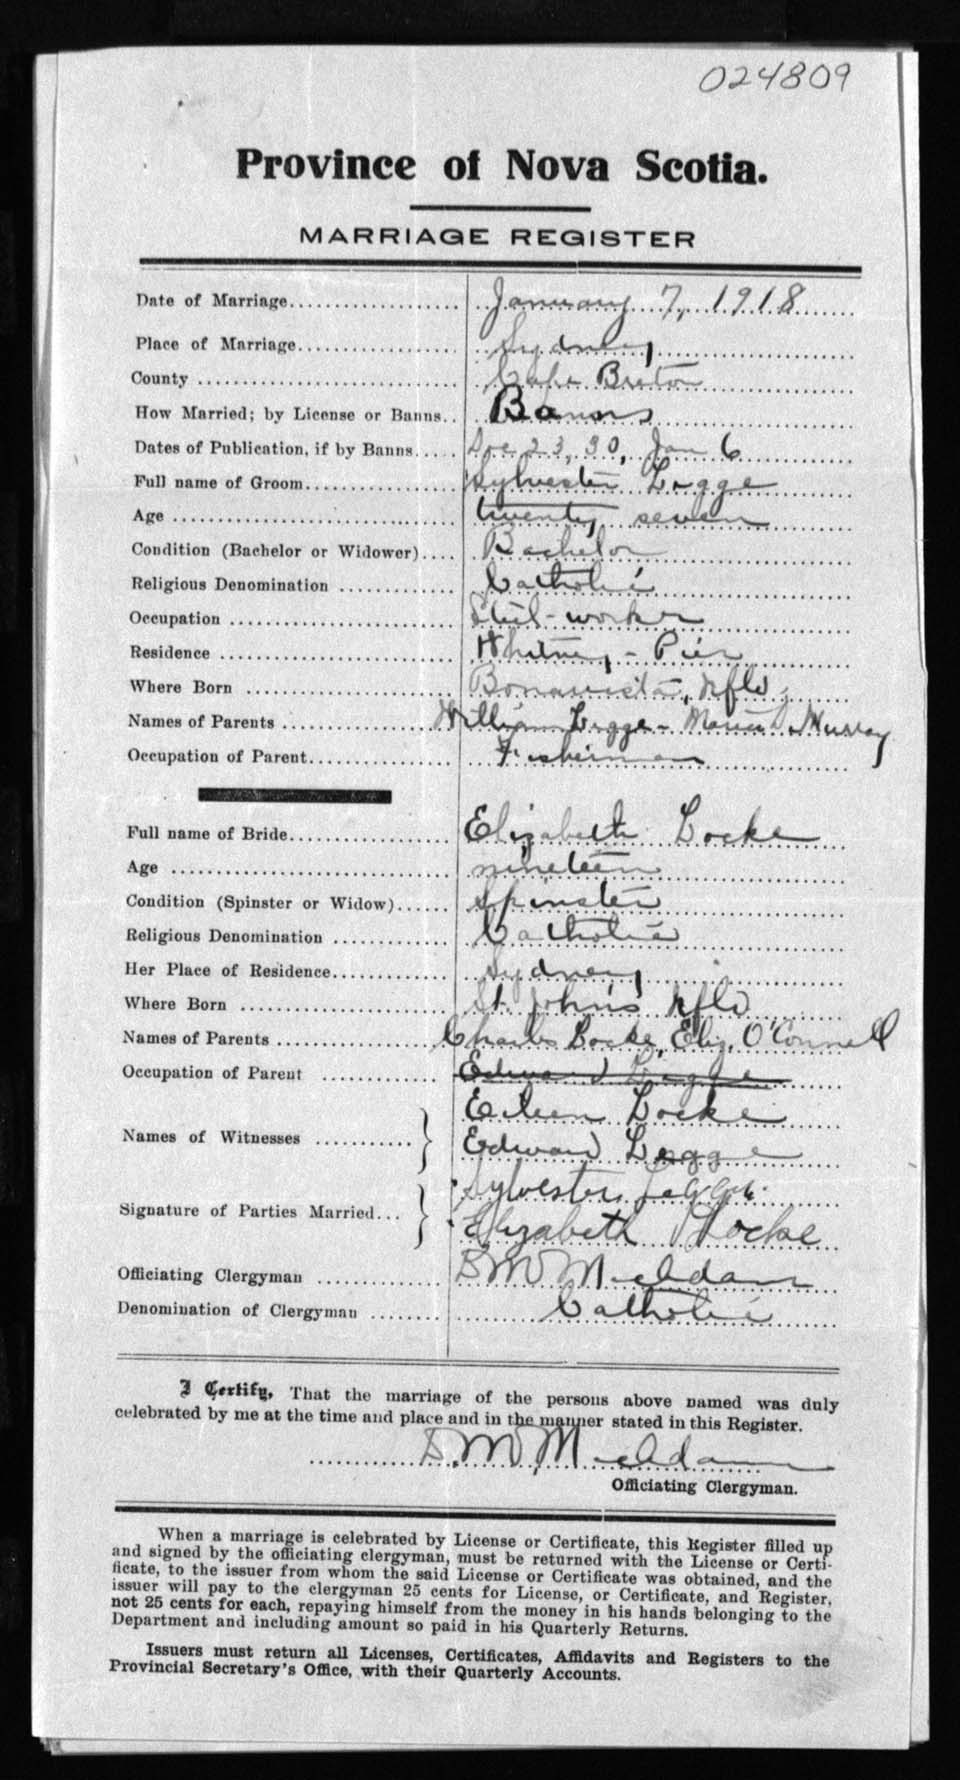 024809
Province of Nova Scotia.
MARRIAGE REGISTER
Date of Marriage.................... January 7, 1918
Place of Marriage................... Sydney
County .............................. Cape Breton
How Married; by License or Banns.. Banns
Dates of Publication, if by Banns..... Dec 23, 30, Jan 6
Full name of Groom.................. Sylvester Legge
Age ................................. twenty seven
Condition (Bachelor or Widower).... Bachelor
Religious Denomination ............. Catholic
Occupation .......................... Steel-worker
Residence ........................... Whitney-Pier
Where Born ........................ Bonavista, Nfld,
Names of Parents .................. William Legge - Maria Murray
Occupation of Parent................ Fisherman
Full name of Bride................... Elizabeth Locke
Age ................................. nineteen
Condition (Spinster or Widow)...... Spinster
Religious Denomination ............. Catholic
Her Place of Residence.............. Sydney
Where Born ........................ St. John's Nfld
Names of Parents .................. Charles Locke, Eliz. O'Connell
Occupation of Parent .............. Edward Legge
Eileen Locke
Names of Witnesses ...........
Edward Legge
Sylvester Legge
Signature of Parties Married...
Elizabeth Locke
Officiating Clergyman .............. D M MacAdam
Denomination of Clergyman ........ Catholic
I Certify, That the marriage of the persons above named was duly
celebrated by me at the time and place and in the manner stated in this Register.
D. M. MacAdam
Officiating Clergyman.
When a marriage is celebrated by License or Certificate, this Register filled up
and signed by the officiating clergyman, must be returned with the License or Certi-
ficate, to the issuer from whom the said License or Certificate was obtained, and the
issuer will pay to the clergyman 25 cents for License, or Certificate, and Register,
not 25 cents for each, repaying himself from the money in his hands belonging to the
Department and including amount so paid in his Quarterly Returns.
Issuers must return all Licenses, Certificates, Affidavits and Registers to the
Provincial Secretary's Office, with their Quarterly Accounts.